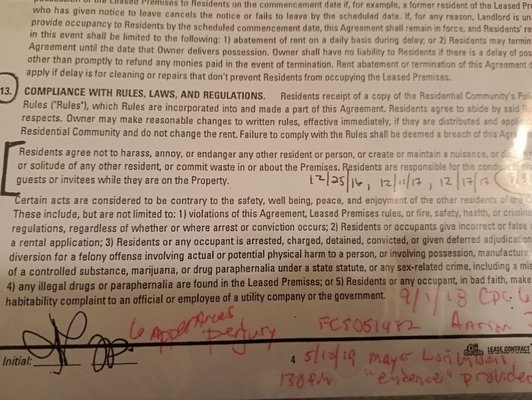 possession of the Leased Premises to Residents on the commencement date if, for example, a former resident of the Leased
who has given notice to leave cancels the notice or fails to leave by the scheduled date. If, for any reason, Landlord is
provide occupancy to Residents by the scheduled commencement date, this Agreement shall remain in force, and Residents'
in this event shall be limited to the following: 1) abatement of rent on a daily basis during delay; or 2) Residents may
Agreement until the date that Owner delivers possession. Owner shall have no liability to Residents if there is a delay of
other than promptly to refund any monies paid in the event of termination. Rent abatement or termination of this Agreement
apply if delay is for cleaning or repairs that don't prevent Residents from occupying the Leased Premises.
13. COMPLIANCE WITH RULES, LAWS, AND REGULATIONS. Residents receipt of a copy of the Residential Community's
Rules ("Rules"), which Rules are incorporated into and made a part of this Agreement. Residents agree to abide by said
respects. Owner may make reasonable changes to written rules, effective immediately, if they are distributed and
Residential Community and do not change the rent. Failure to comply with the Rules shall be deemed a breach of this
Residents agree not to harass, annoy, or endanger any other resident or person, or create or maintain a nuisance, or
or solitude of any other resident, or commit waste in or about the Premises. Residents are responsible for the
guests or invitees while they are on the Property. 12/25/16, 12/11/17, 12/17/17
Certain acts are considered to be contrary to the safety, well being, peace, and enjoyment of the other residents of the
These include, but are not limited to: 1) violations of this Agreement, Leased Premises rules, or fire, safety, health, or
regulations, regardless of whether or where arrest or conviction occurs; 2) Residents or occupants give incorrect or false
a rental application; 3) Residents or any occupant is arrested, charged, detained, convicted, or given deferred adjudication
diversion for a felony offense involving actual or potential physical harm to a person, or involving possession, manufacture
of a controlled substance, marijuana, or drug paraphernalia under a state statute, or any sex-related crime, including a
4) any illegal drugs or paraphernalia are found in the Leased Premises; or 5) Residents or any occupant, in bad faith,
habitability complaint to an official or employee of a utility company or the government. 9/1/18
perjury
Initial:
4 5/10/19 mayor Lori
LEASE CONTRACT
130 pm "evidence"